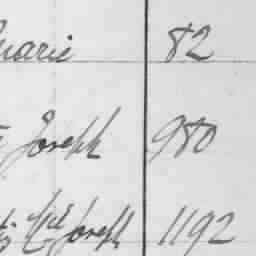 Marie 82
Joseph 980
Joseph 1192